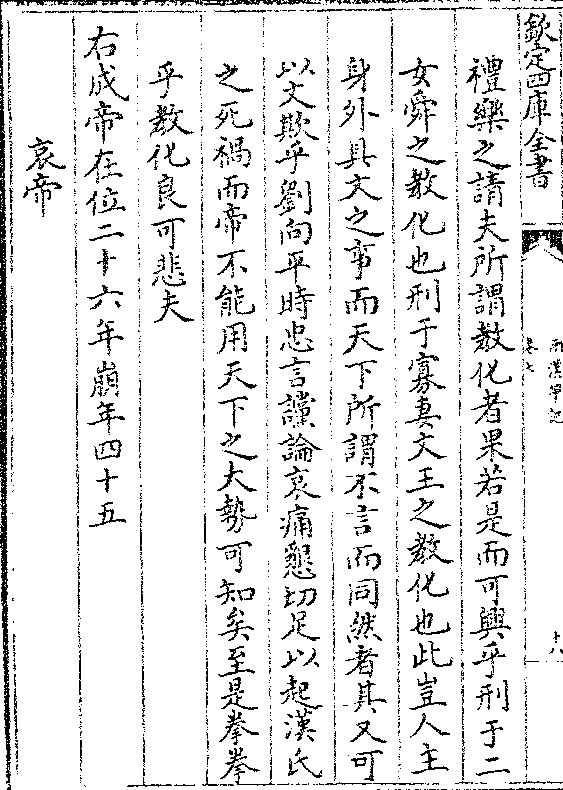 欽定四庫全書
兩漢筆記
卷七
十八
禮樂之請夫所謂教化者果若是而可興乎刑于二
女舜之教化也刑于寡妻文王之教化也此豈人主
身外具文之事而天下所謂不言而同然者其又可
以文欺乎劉向平時忠言讜論哀痛懇切足以起漢氏
之死禍而帝不能用天下之大勢可知矣至是拳拳
乎教化良可悲夫
右成帝在位二十六年崩年四十五
哀帝